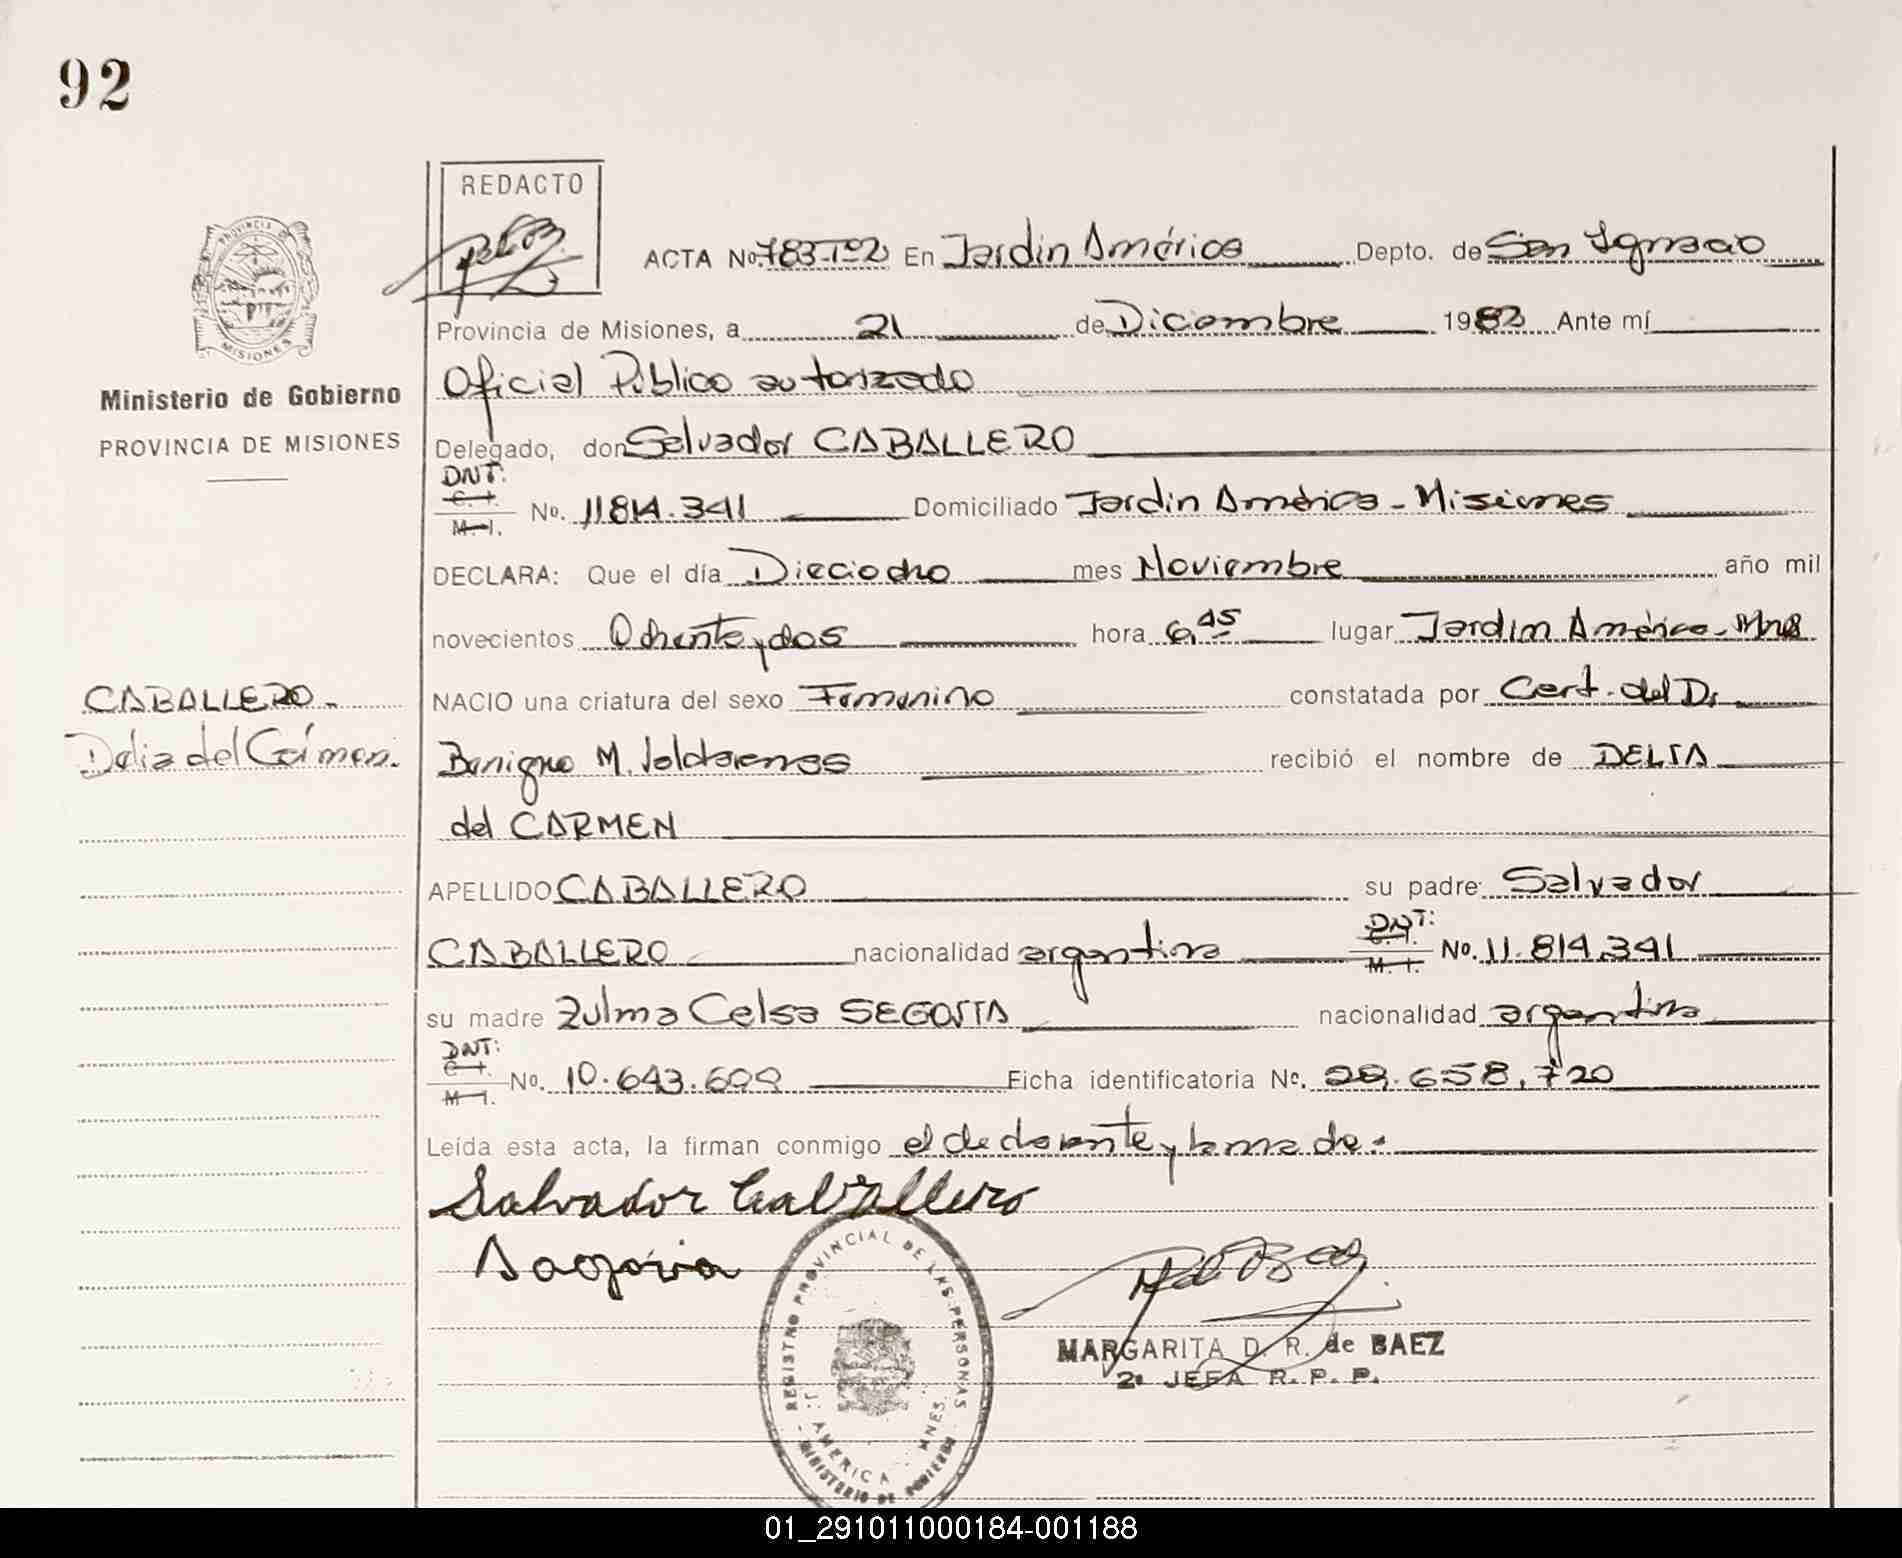 92
REDACTO
ACTA No. 783-Tº2 En Jardín América Depto. de San Ignacio
PROVINCIA
MISIONES
Provincia de Misiones, a 21 de Diciembre 1982 Ante mí
Ministerio de Gobierno
PROVINCIA DE MISIONES
Oficial Público autorizado
Delegado, don Salvador CABALLERO
DNI:
C. I.
M. I. No. 11814.341 Domiciliado Jardín América - Misiones
DECLARA: Que el día Dieciocho mes Noviembre año mil
novecientos Ochenta y dos hora 6,45 lugar Jardín América - Mnes
CABALLERO.
Delia del Cármen.
NACIO una criatura del sexo Femenino constatada por Cert. del Dr
Benigno M. recibió el nombre de DELIA
del CARMEN
APELLIDO CABALLERO su padre: Salvador
CABALLERO nacionalidad argentina DNI: C. I. M. I. No. 11.814.341
su madre Zulma Celsa SEGOVIA nacionalidad argentina
DNI:
C. I.
M. I. No. 10.643.699 Ficha identificatoria No. 29.658.720
Leída esta acta, la firman conmigo el declarante y la madre.
Salvador Caballero
Segovia
REGISTRO PROVINCIAL DE LAS PERSONAS
J. AMERICA - MNES.
MINISTERIO DE GOBIERNO
MARGARITA D. R. de BAEZ
2a JEFA R. P. P.
01_291011000184-001188